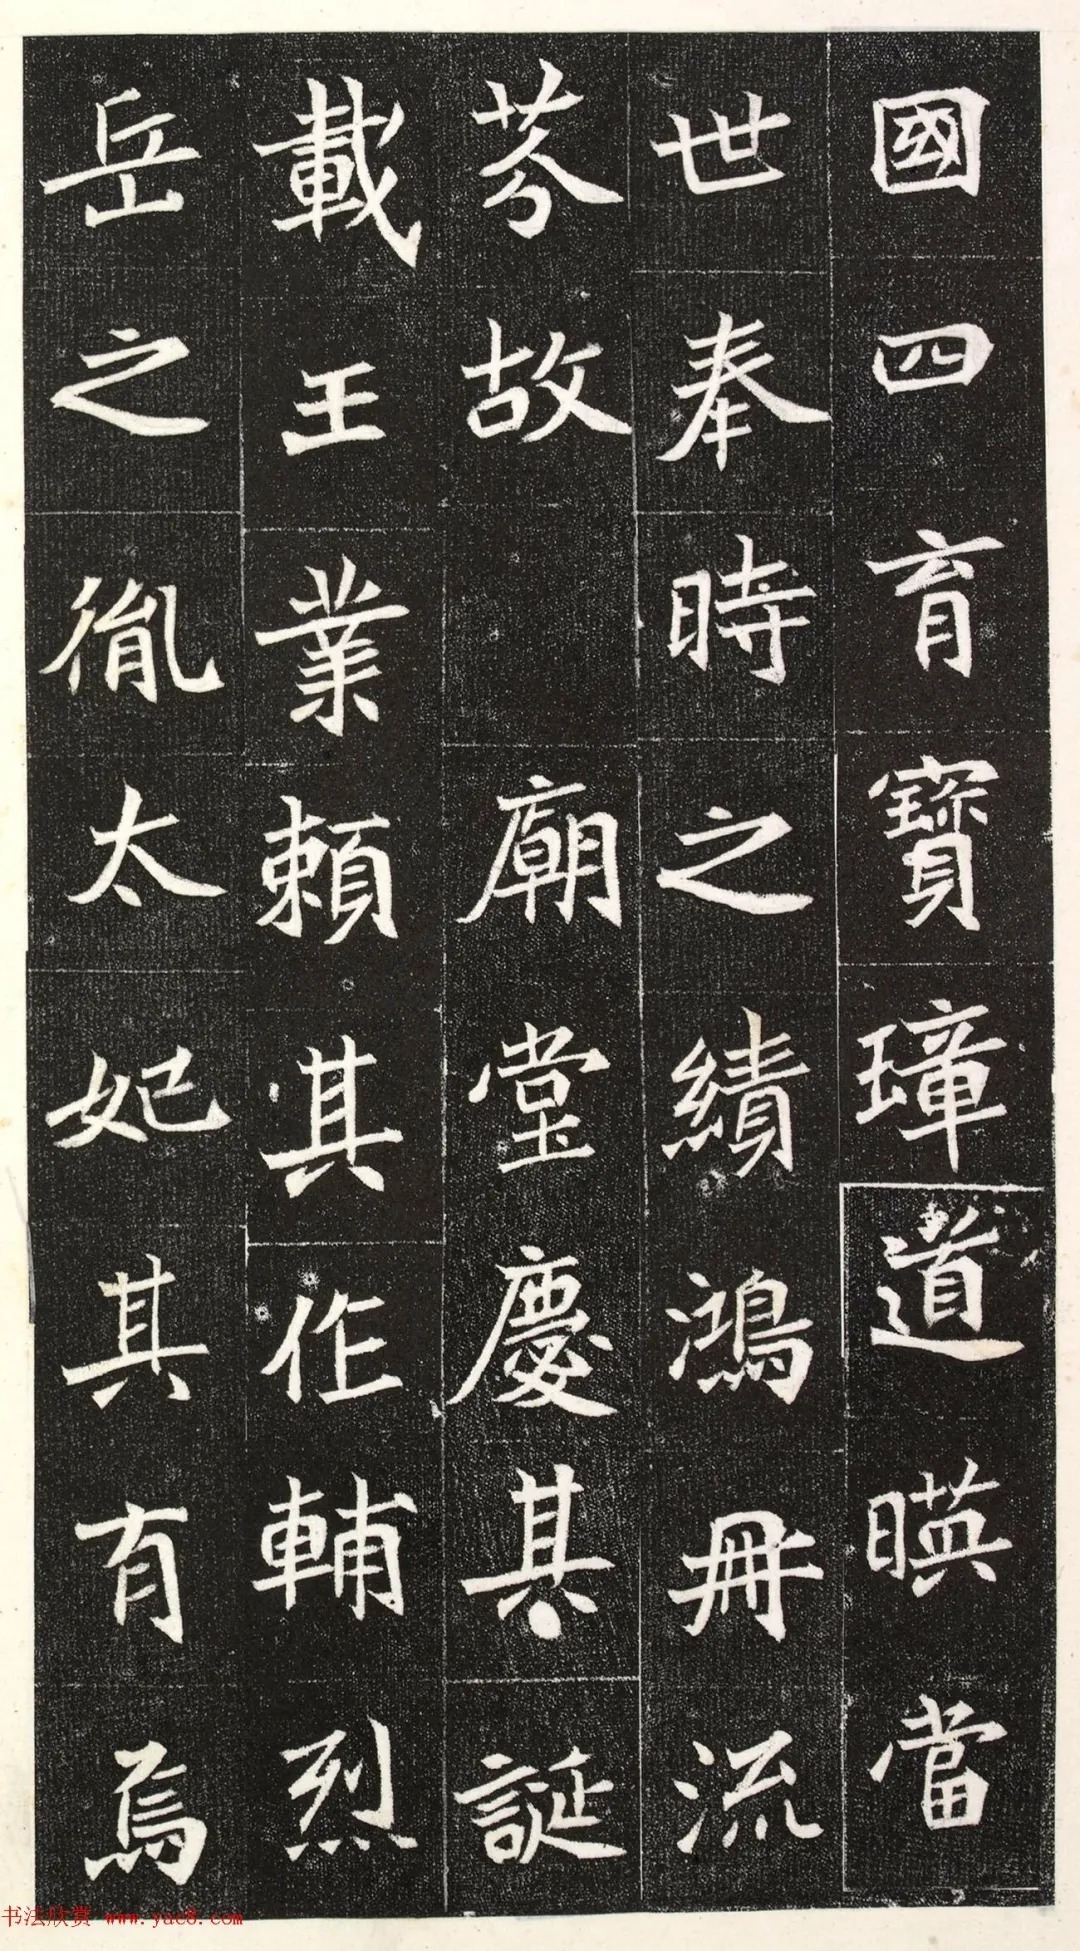 國四育寶璋道暎當
世奉時之績鴻冊流
芬故廟堂慶其誕
載王業賴其作輔烈
岳之胤太妃其有焉
书法欣赏 www.yac8.com